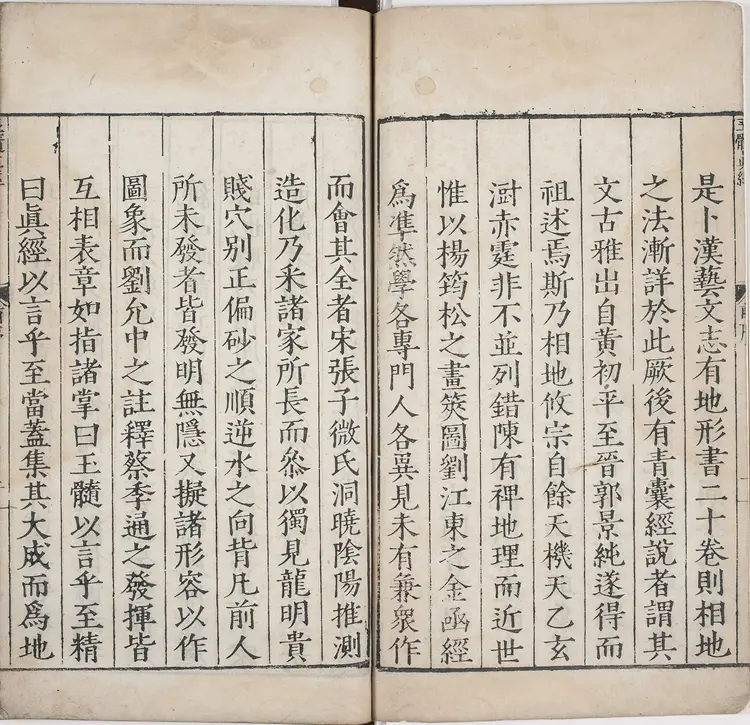 是卜漢藝文志有地形書二十卷則相地
之法漸詳於此厥後有青囊經說者謂其
文古雅出自黃初平至晉郭景純遂得而
祖述焉斯乃相地攸宗自餘天機天乙玄
澍赤霆非不並列錯陳有裨地理而近世
惟以楊筠松之畫筴圖劉江東之金函經
爲準然學各專門人各異見未有兼衆作
而會其全者宋張子微氏洞曉陰陽推測
造化乃釆諸家所長而叅以獨見龍明貴
賤穴別正偏砂之順逆水之向背凡前人
所未發者皆發明無隱又擬諸形容以作
圖象而劉允中之註釋蔡季通之發揮皆
互相表章如指諸掌曰玉髓以言乎至精
曰眞經以言乎至當蓋集其大成而爲地